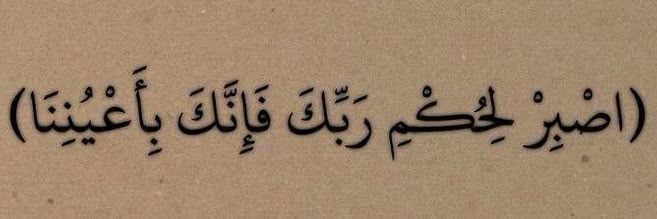 (اصْبِرْ لِحُكْمِ رَبِّكَ فَإِنَّكَ بِأَعْيُنِنَا)